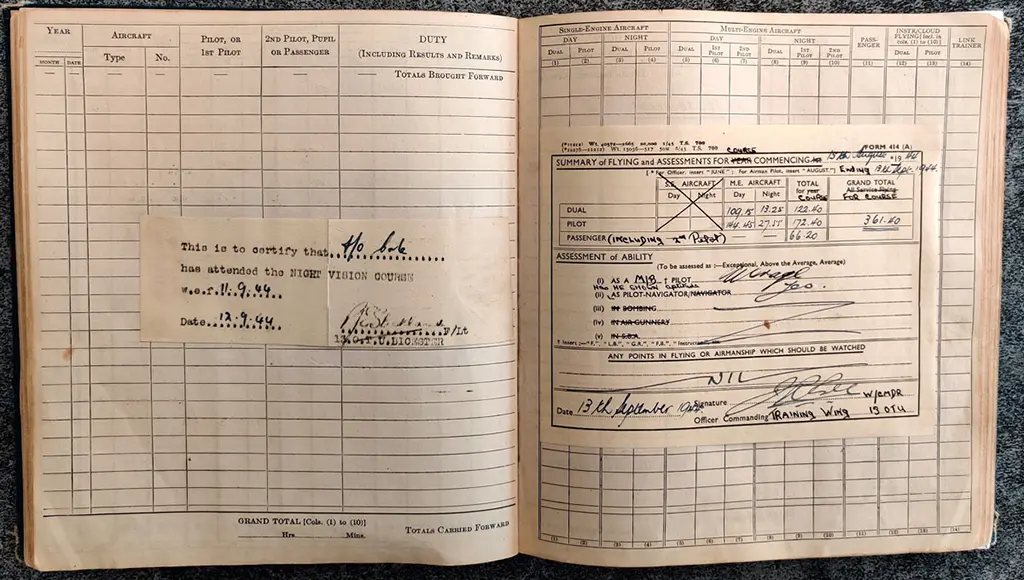 YEAR
AIRCRAFT
PILOT, OR
1ST PILOT
2ND PILOT, PUPIL
OR PASSENGER
DUTY
(INCLUDING RESULTS AND REMARKS)
MONTH DATE Type No.
— — — — — — TOTALS BROUGHT FORWARD
This is to certify that F/O Cole
has attended the NIGHT VISION COURSE
w.e.f. 11.9.44
Date 12.9.44
F/Lt
13.O.T.U. BICESTER
GRAND TOTAL [Cols. (1) to (10)]
Hrs. Mins.
TOTALS CARRIED FORWARD
SINGLE-ENGINE AIRCRAFT MULTI-ENGINE AIRCRAFT
DAY NIGHT DAY NIGHT
PASS-
ENGER
INSTR/CLOUD
FLYING [Incl. in
cols. (1) to (10)]
LINK
TRAINER
DUAL PILOT DUAL PILOT DUAL 1ST PILOT 2ND PILOT DUAL 1ST PILOT 2ND PILOT DUAL PILOT
(1) (2) (3) (4) (5) (6) (7) (8) (9) (10) (11) (12) (13) (14)
FORM 414 (A)
SUMMARY of FLYING and ASSESSMENTS FOR YEAR COURSE COMMENCING 15th August 1944
[* For Officer, insert "JUNE"; For Airman Pilot, insert "AUGUST."] ENDING 13th Sept. 1944.
S.E. AIRCRAFT M.E. AIRCRAFT TOTAL for year COURSE GRAND TOTAL All Service Flying FOR COURSE
Day Night Day Night
DUAL 109.15 13.25 122.40
PILOT 144.45 27.55 172.40 361.40
PASSENGER (INCLUDING 2nd Pilot) 66.20
ASSESSMENT of ABILITY
(To be assessed as :—Exceptional, Above the Average, Average)
(i) AS A M/B † PILOT Average
HAS HE SHOWN APTITUDE
(ii) AS PILOT-NAVIGATOR/NAVIGATOR Yes.
(iii) IN BOMBING
(iv) IN AIR GUNNERY
(v) IN S.B.A.
† Insert :—"F.", "L.B.", "G.R.", "F.B.",
ANY POINTS IN FLYING OR AIRMANSHIP WHICH SHOULD BE WATCHED
NIL
Date 13th September 1944 Signature W/CMDR
Officer Commanding TRAINING WING 13 OTU
(1) (2) (3) (4) (5) (6) (7) (8) (9) (10) (11) (12) (13) (14)